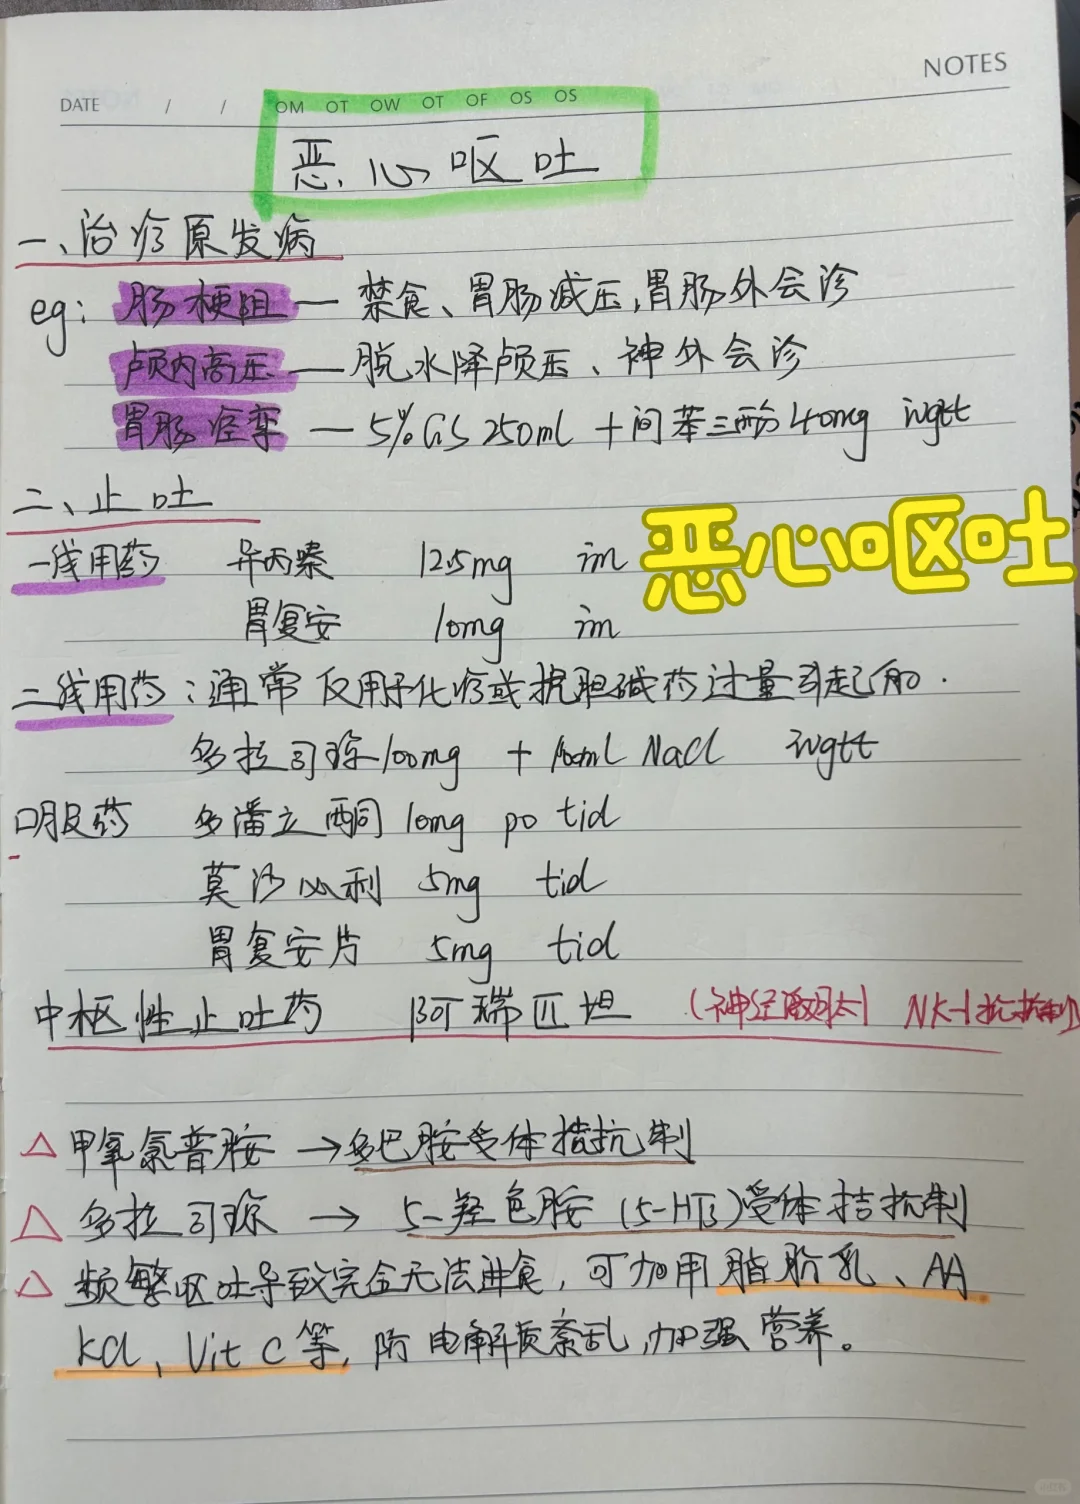 NOTES
DATE / / OM OT OW OT OF OS OS
恶心呕吐
一、治疗原发病
eg: 肠梗阻 — 禁食、胃肠减压,胃肠外会诊
颅内高压 — 脱水降颅压、神外会诊
胃肠痉挛 — 5%GS 250ml + 间苯三酚 40mg ivgtt
二、止吐
恶心呕吐
一线用药 异丙嗪 12.5mg im
胃复安 10mg im
二线用药:通常仅用于化疗或抗胆碱药过量引起的.
多拉司琼 100mg + 100ml NaCl ivgtt
口服药 多潘立酮 10mg po tid
莫沙必利 5mg tid
胃复安片 5mg tid
中枢性止吐药 阿瑞匹坦 (神经激肽) NK-1拮抗剂
△ 甲氧氯普胺 → 多巴胺受体拮抗剂
△ 多拉司琼 → 5-羟色胺 (5-HT3)受体拮抗剂
△ 频繁呕吐导致完全无法进食,可加用脂肪乳、AA
KCl、Vit C等,防电解质紊乱,加强营养。